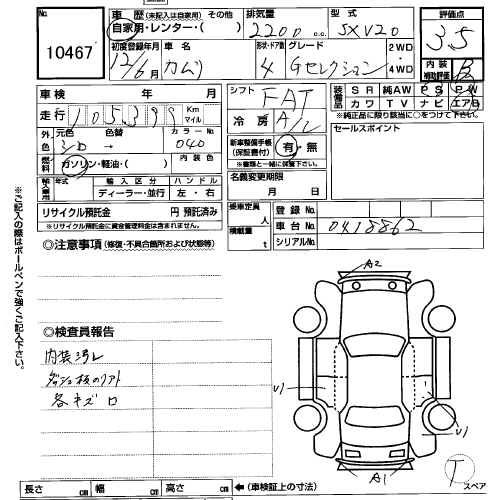 No.
10467
車歴 (未記入は自家用) その他
自家用・レンター・( )
排気量
2200 c.c.
型式
SXV20
評価点
3.5
初度登録年月
12/6月
車名
カムリ
形状・ドア数
4
グレード
Gセレクション
2WD
4WD
内装
補助評価
B
車検 年 月
走行 105,399 Km マイル
シフト
FAT
冷房
A/C
装備品
SR 純AW PS PW
カワ TV ナビ エアB
※純正品に限り該当に○をつけて下さい。
外色
元色
色替
カラーNo.
040
燃料
ガソリン・軽油・( )
内装色
新車整備手帳
(保証書付)
有・無
※書類と一緒に保管して下さい。
セールスポイント
輸入車
年式
輸入区分
ディーラー・並行
ハンドル
左・右
名義変更期限
月 日
リサイクル預託金 円 預託済み
※リサイクル預託金に資金管理料金は含まれません。
乗車定員
人
積載量
t
登録No.
車台No.
0418862
シリアルNo.
◎注意事項 (修復・不具合箇所および状態等)
※ご記入の際はボールペンで強くご記入下さい。
◎検査員報告
内装汚レ
各キズ
A2
U1
U1
A1
T
スペア
長さ cm
幅 cm
高さ cm
(車検証上の寸法)